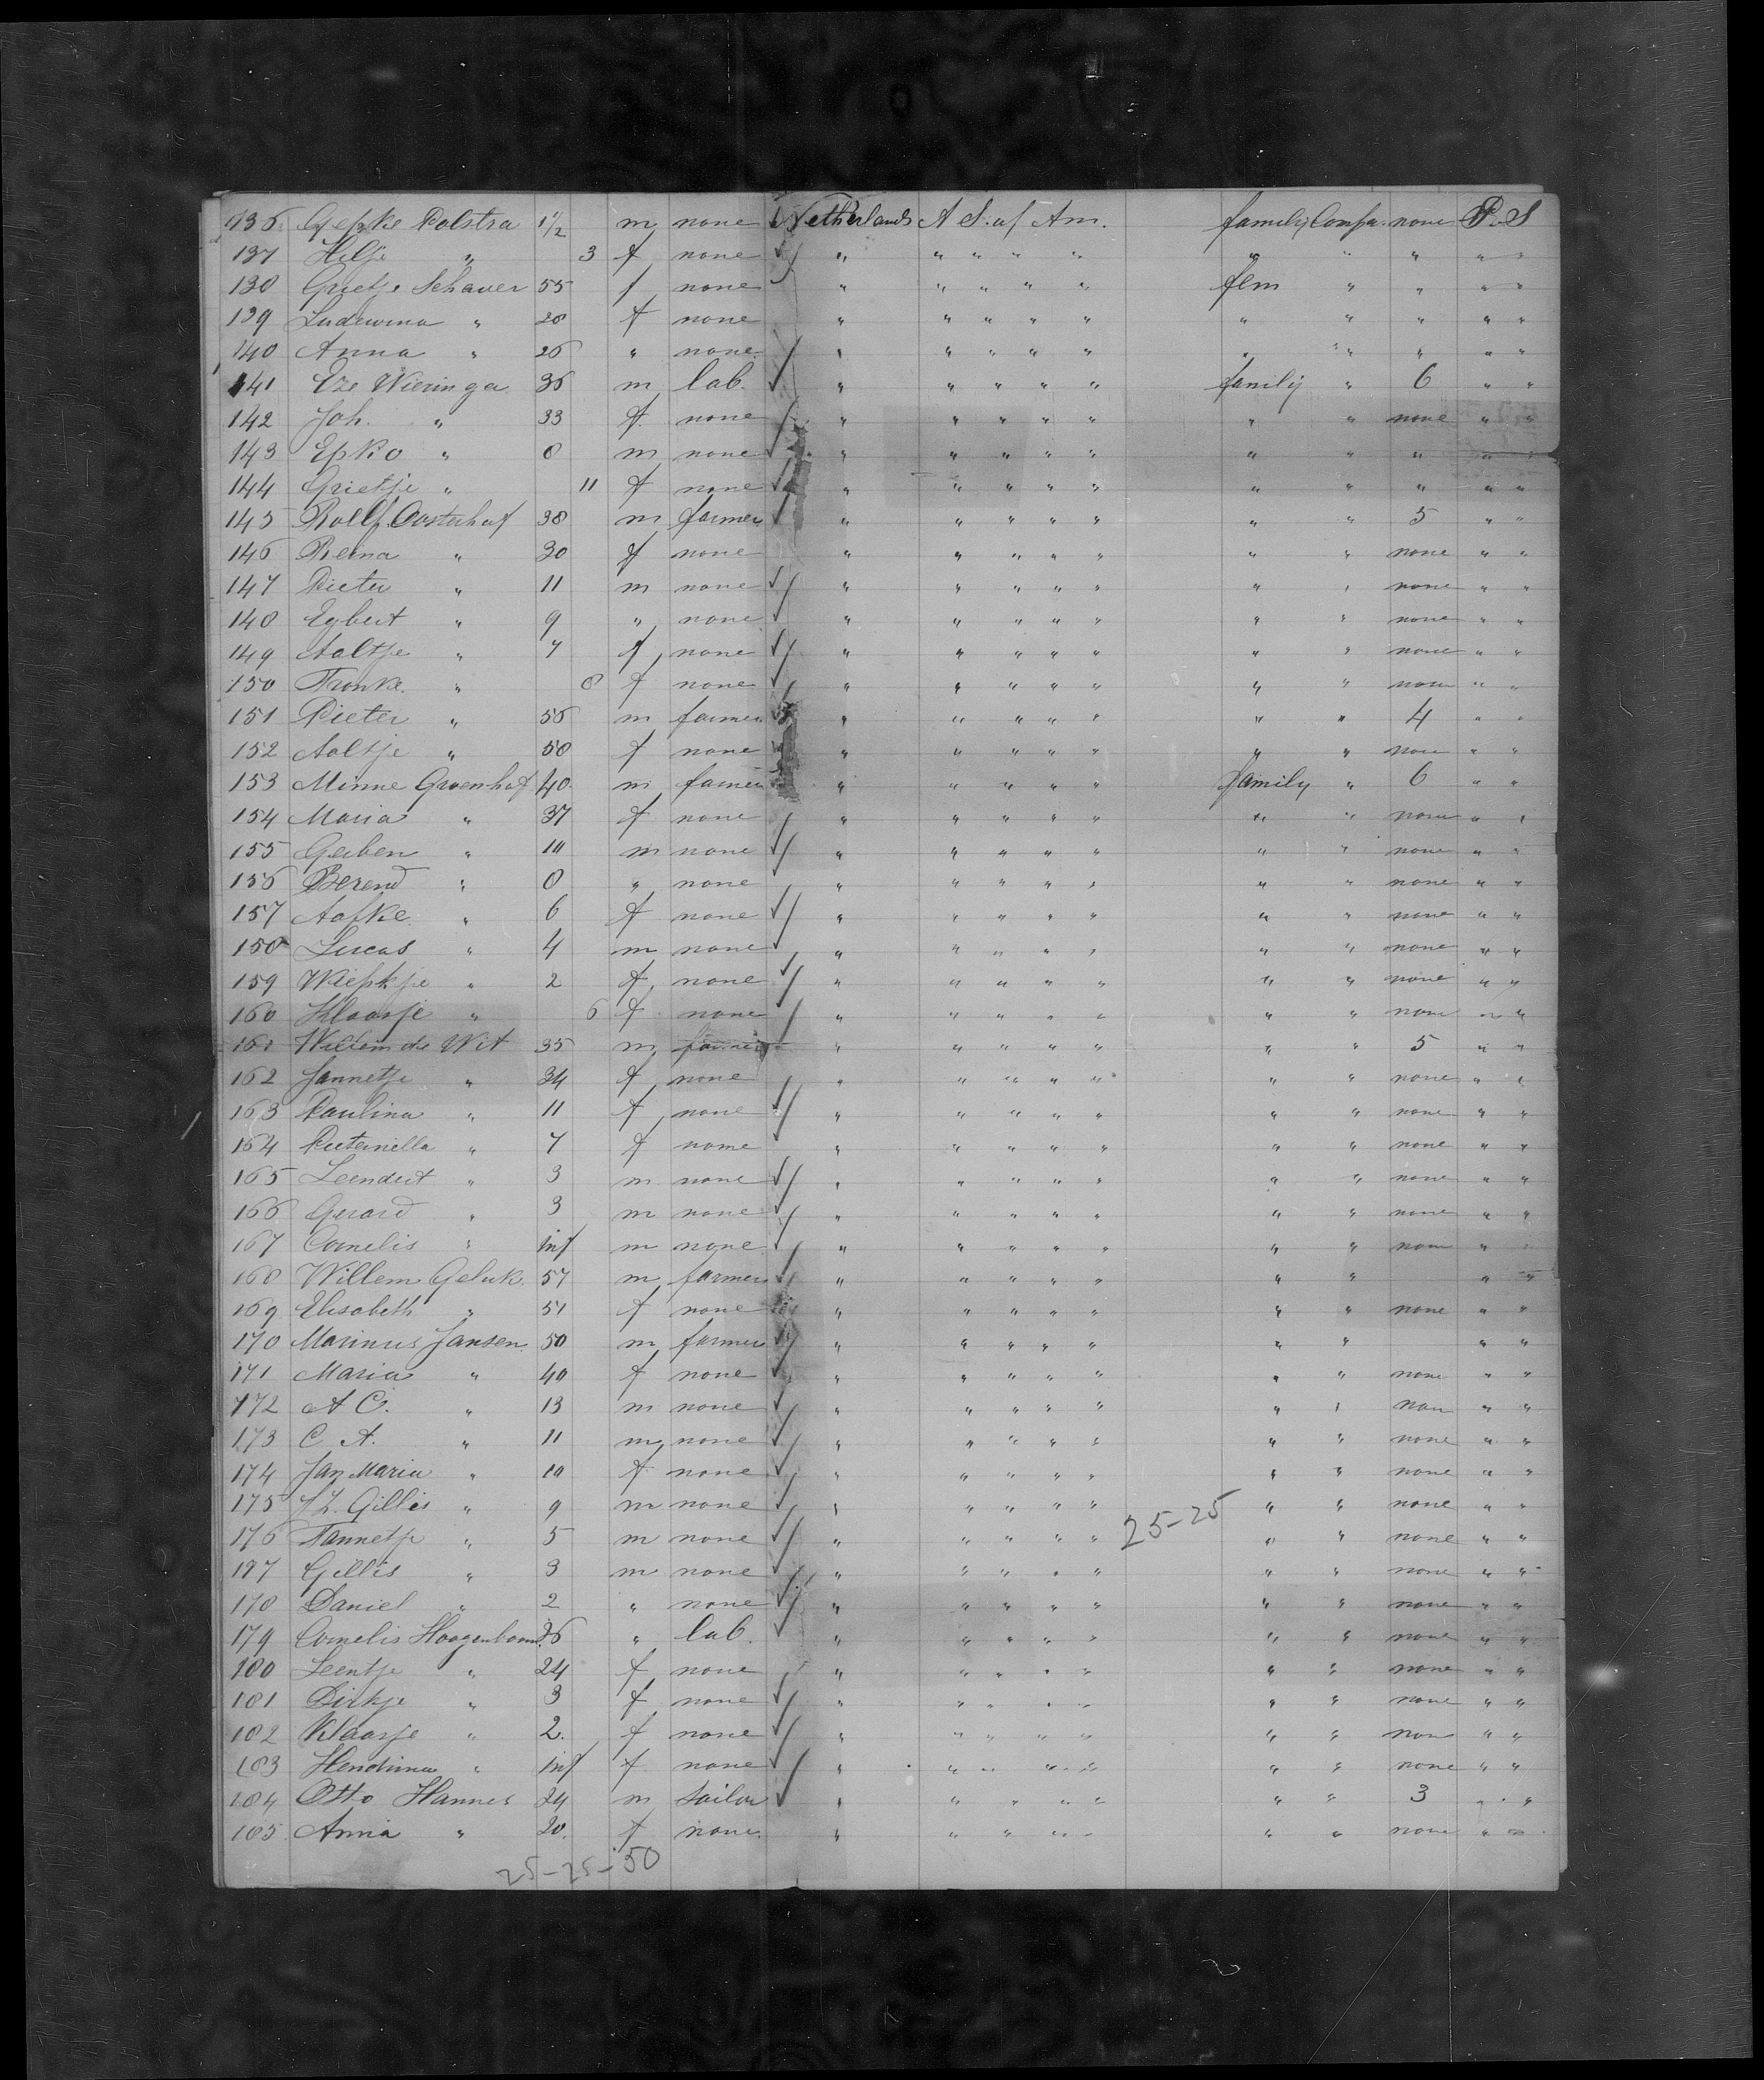 136 Gepke Polstra 1 1/2 m none Netherlands U S. of Am. family Compa. none P. S
137 Hilje " 3 f none " " " " " " " " " "
138 Grietje Schauer 55 f none " " " " " fem " " " "
139 Ludewina " 28 f none " " " " " " " " " "
140 Anna " 26 " none " " " " " " " " " "
141 Eze Wieringa 36 m lab. " " " " " family " 6 " "
142 Joh. " 33 f. none " " " " " " " none " "
143 Epko " 8 m none " " " " " " " " " "
144 Grietje " 11 f none " " " " " " " " " "
145 Rolf Oosterhof 38 m farmer " " " " " " " 5 " "
146 Reina " 30 f none " " " " " " " none " "
147 Pieter " 11 m none " " " " " " " none " "
148 Egbert " 9 " none " " " " " " " none " "
149 Aaltje " 7 f none " " " " " " " none " "
150 Fronke " 8 f none " " " " " " " none " "
151 Pieter " 56 m farmer " " " " " " " 4 " "
152 Aaltje " 58 f none " " " " " " " none " "
153 Minne Groenhof 40 m farmer " " " " " family " 6 " "
154 Maria " 37 f none " " " " " " " none " "
155 Gerben " 10 m none " " " " " " " none " "
156 Berend " 8 " none " " " " " " " none " "
157 Aafke " 6 f none " " " " " " " none " "
158 Lucas " 4 m none " " " " " " " none " "
159 Wiepkje " 2 f none " " " " " " " none " "
160 Klaasje " 6 f none " " " " " " " none " "
161 Willem de Wit 35 m farmer " " " " " " " 5 " "
162 Jannetje " 34 f none " " " " " " " none " "
163 Paulina " 11 f none " " " " " " " none " "
164 Pieternella " 7 f none " " " " " " " none " "
165 Leendert " 3 m none " " " " " " " none " "
166 Gerard " 3 m none " " " " " " " none " "
167 Cornelis " inf m none " " " " " " " none " "
168 Willem Geluk 57 m farmer " " " " " " " " "
169 Elisabeth " 51 f none " " " " " " " none " "
170 Marinus Jansen 50 m farmer " " " " " " " " "
171 Maria " 40 f none " " " " " " " none " "
172 A C. " 13 m none " " " " " " " none " "
173 C A. " 11 m none " " " " " " " none " "
174 Jan Maria " 10 f none " " " " " " " none " "
175 Gillis " 9 m none " " " " " " " none " "
176 Tannetje " 5 m none " " " " 25-25 " " none " "
177 Gillis " 3 m none " " " " " " " none " "
178 Daniel " 2 " none " " " " " " " none " "
179 Cornelis Hoogenboom 26 " lab. " " " " " " " none " "
180 Leentje " 24 f none " " " " " " " none " "
181 Dirkje " 3 f none " " " " " " " none " "
182 Klaasje " 2. f none " " " " " " " none " "
183 Hendrina " inf f none " " " " " " " none " "
184 Otto Hannes 24 m tailor " " " " " " " 3 " "
185 Anna " 20. f none. " " " " " " " none " "
25-25-50